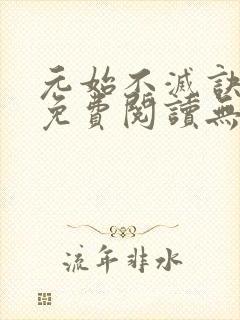 元始不滅訣
免費閱讀無
流年非水